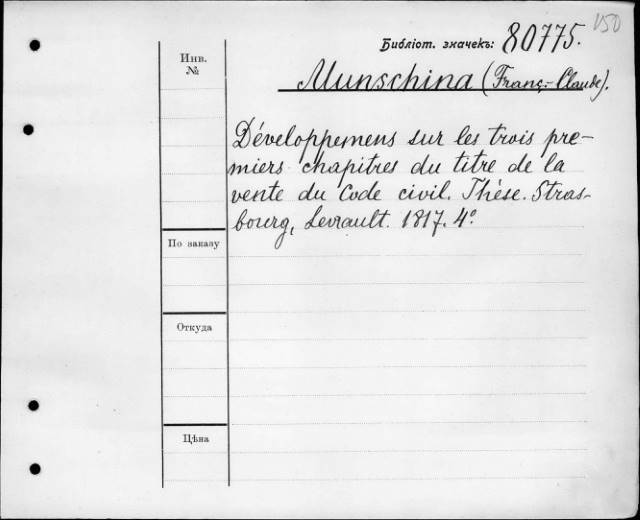 150
Библіот. значекъ: 80775.
Инв.
№
Munschina (Franç.-Claude).
Développemens sur les trois pre-
miers chapitres du titre de la
vente du Code civil. Thèse. Stras-
bourg, Levrault. 1817. 4º
По заказу
Откуда
Цѣна